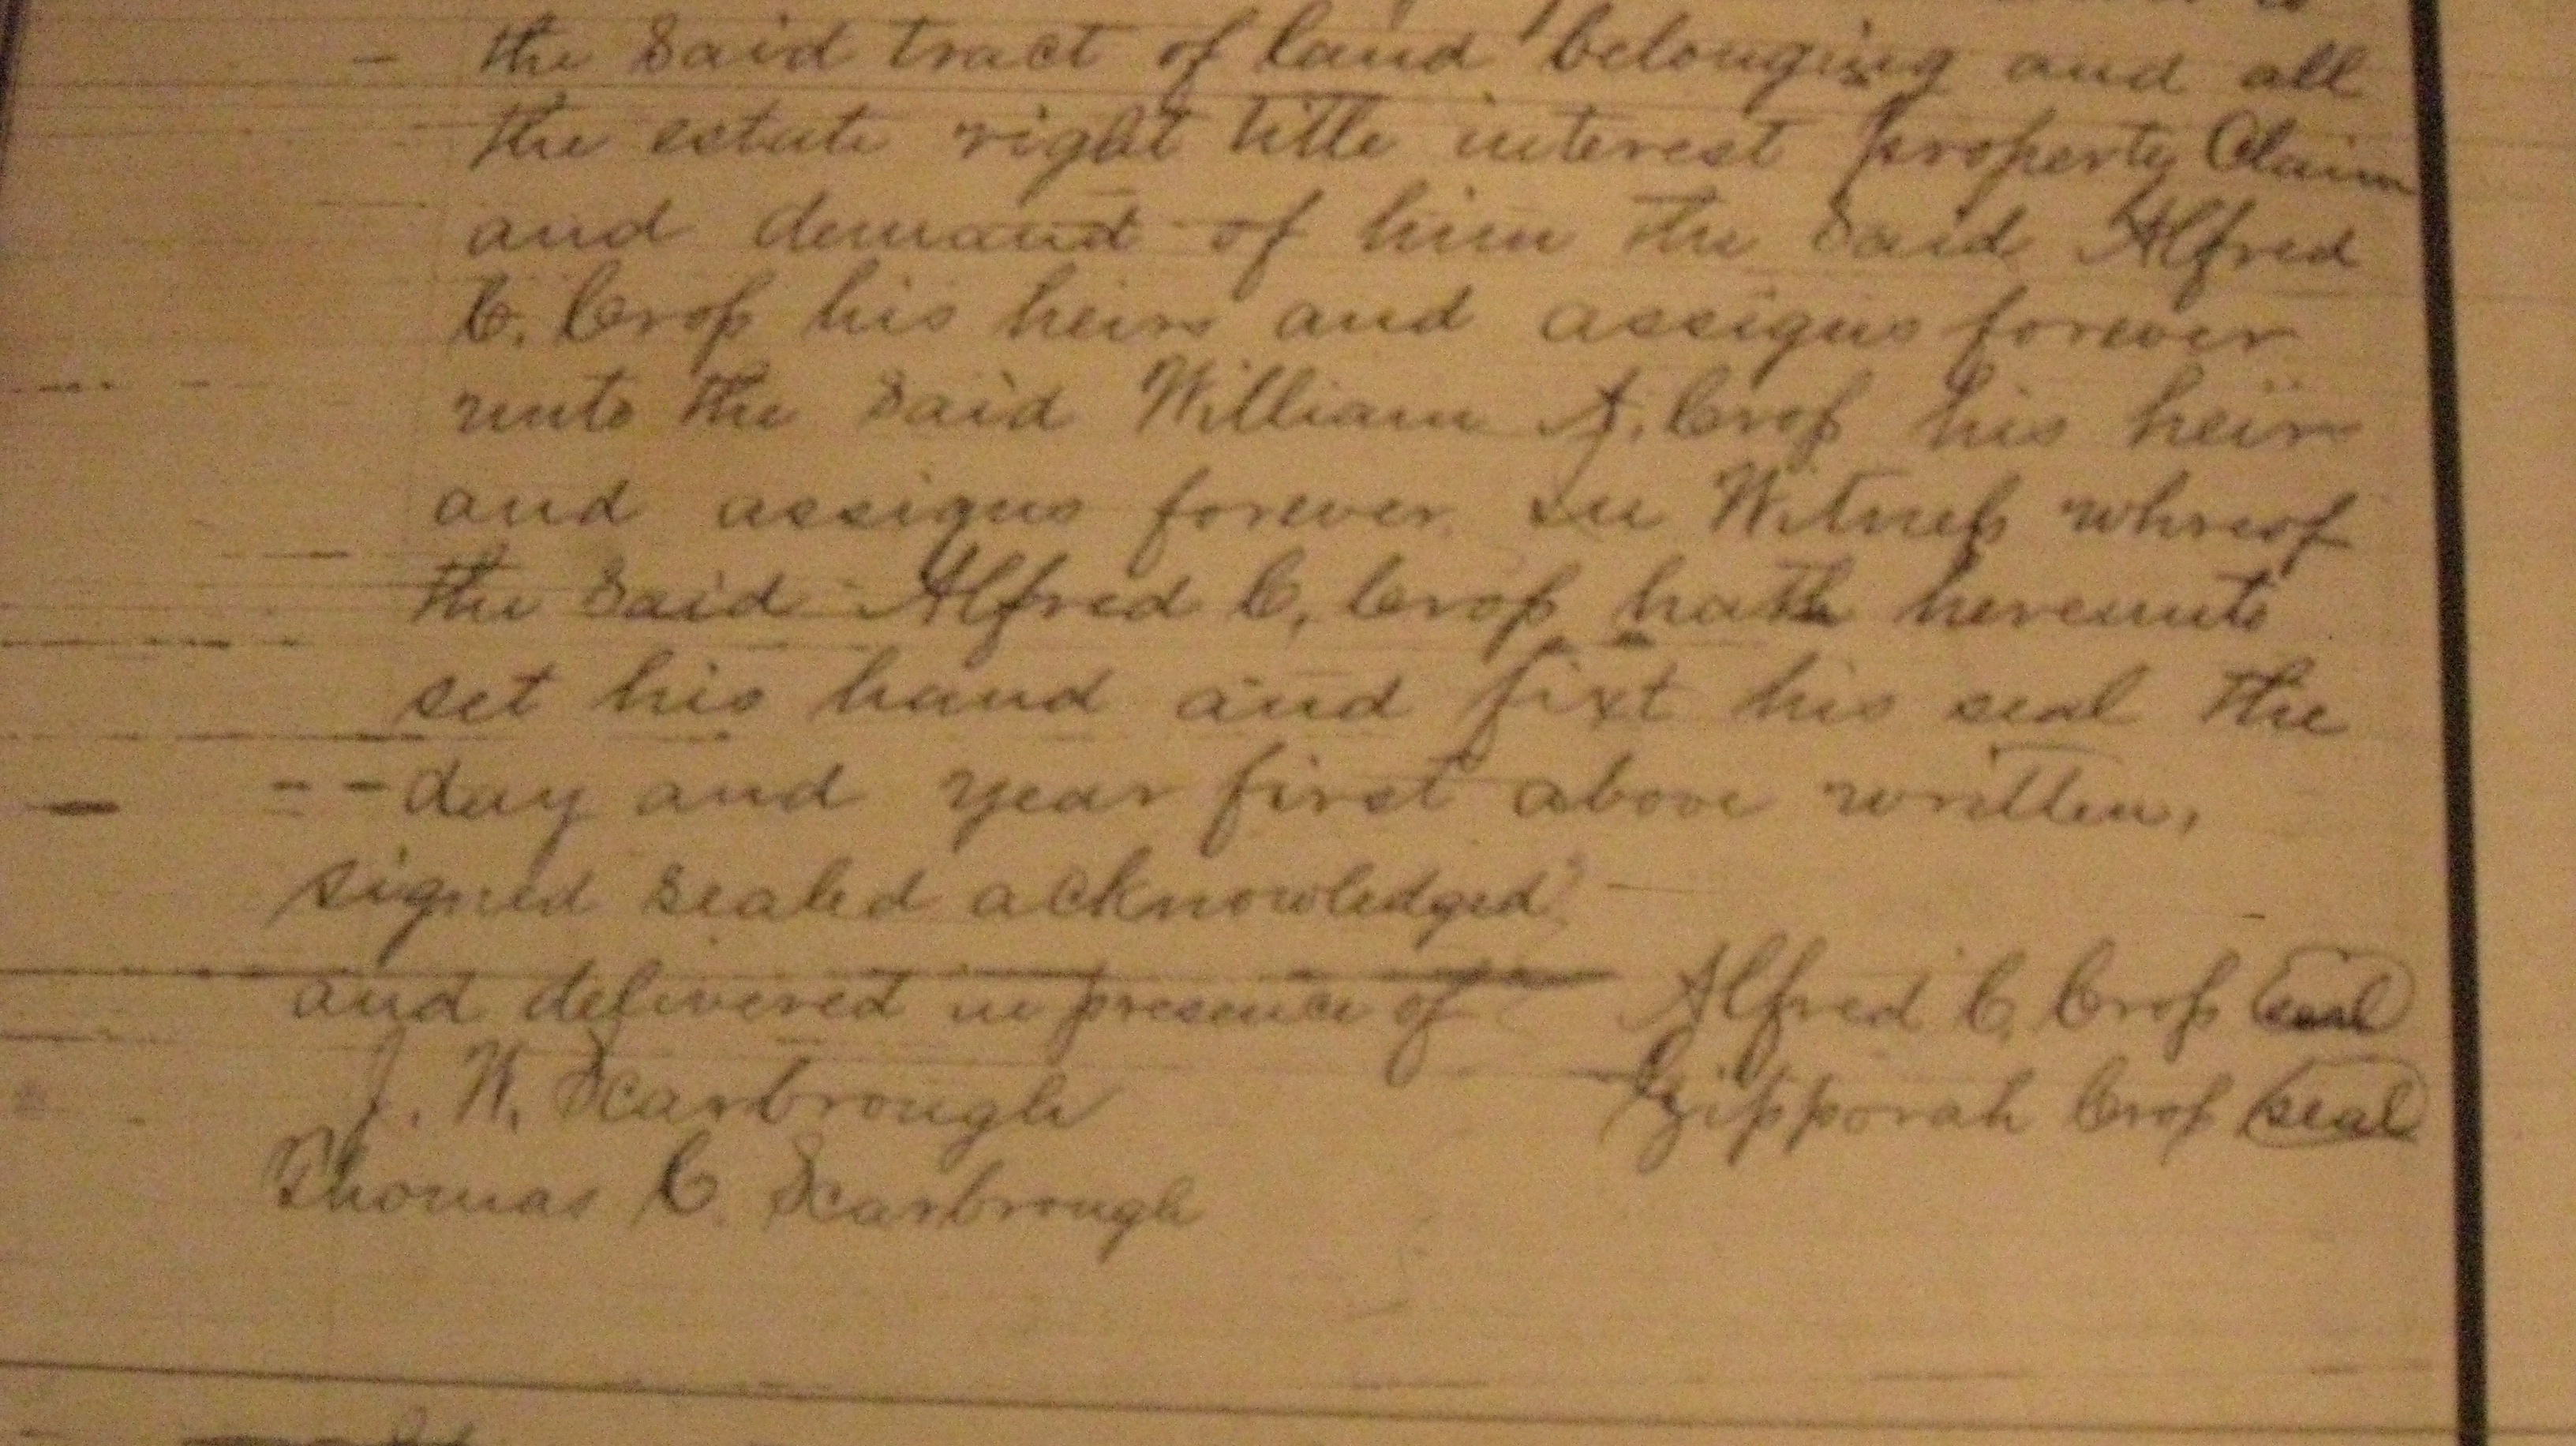 the Said tract of land belonging and all
the estate right title interest property Claim
and demand of him the Said Alfred
C. Croſs his heirs and assigns forever
unto the Said William A. Croſs his heirs
and assigns forever In Witneſs whreof
the Said Alfred C, Croſs hath hereunto
set his hand and fixt his seal the
day and year first above written,
signed sealed acknowledged
and delivered in presence of Alfred C. Croſs seal
J. W. Scarbrough Zipporah Croſs seal
Thomas C. Scarbrough